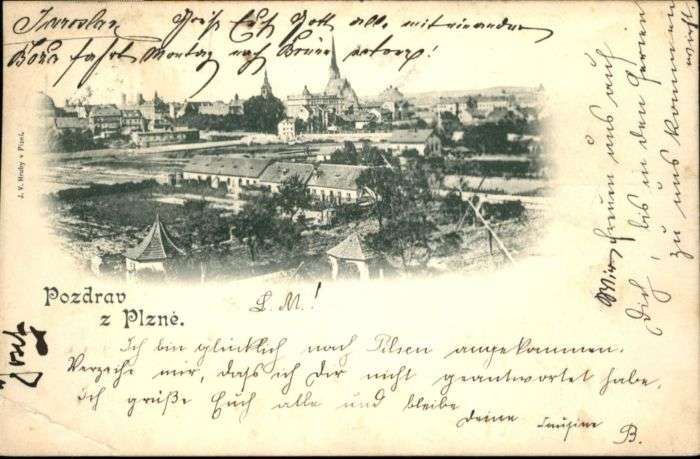 Jaroslav Grüß Euch Gott alle miteinander
fährt Montag nach Brünn retour!
J. V. Hruby v Plzni.
Pozdrav
z Plzně.
L. M.!
Ich bin glücklich nach Pilsen angekommen.
Verzeihe mir, daß ich Dir nicht geantwortet habe.
Ich grüße Euch alle und bleibe
Deine
B.
Wir freuen uns auf
Dich! bis in den Ferien
zu uns kommen
wirst.